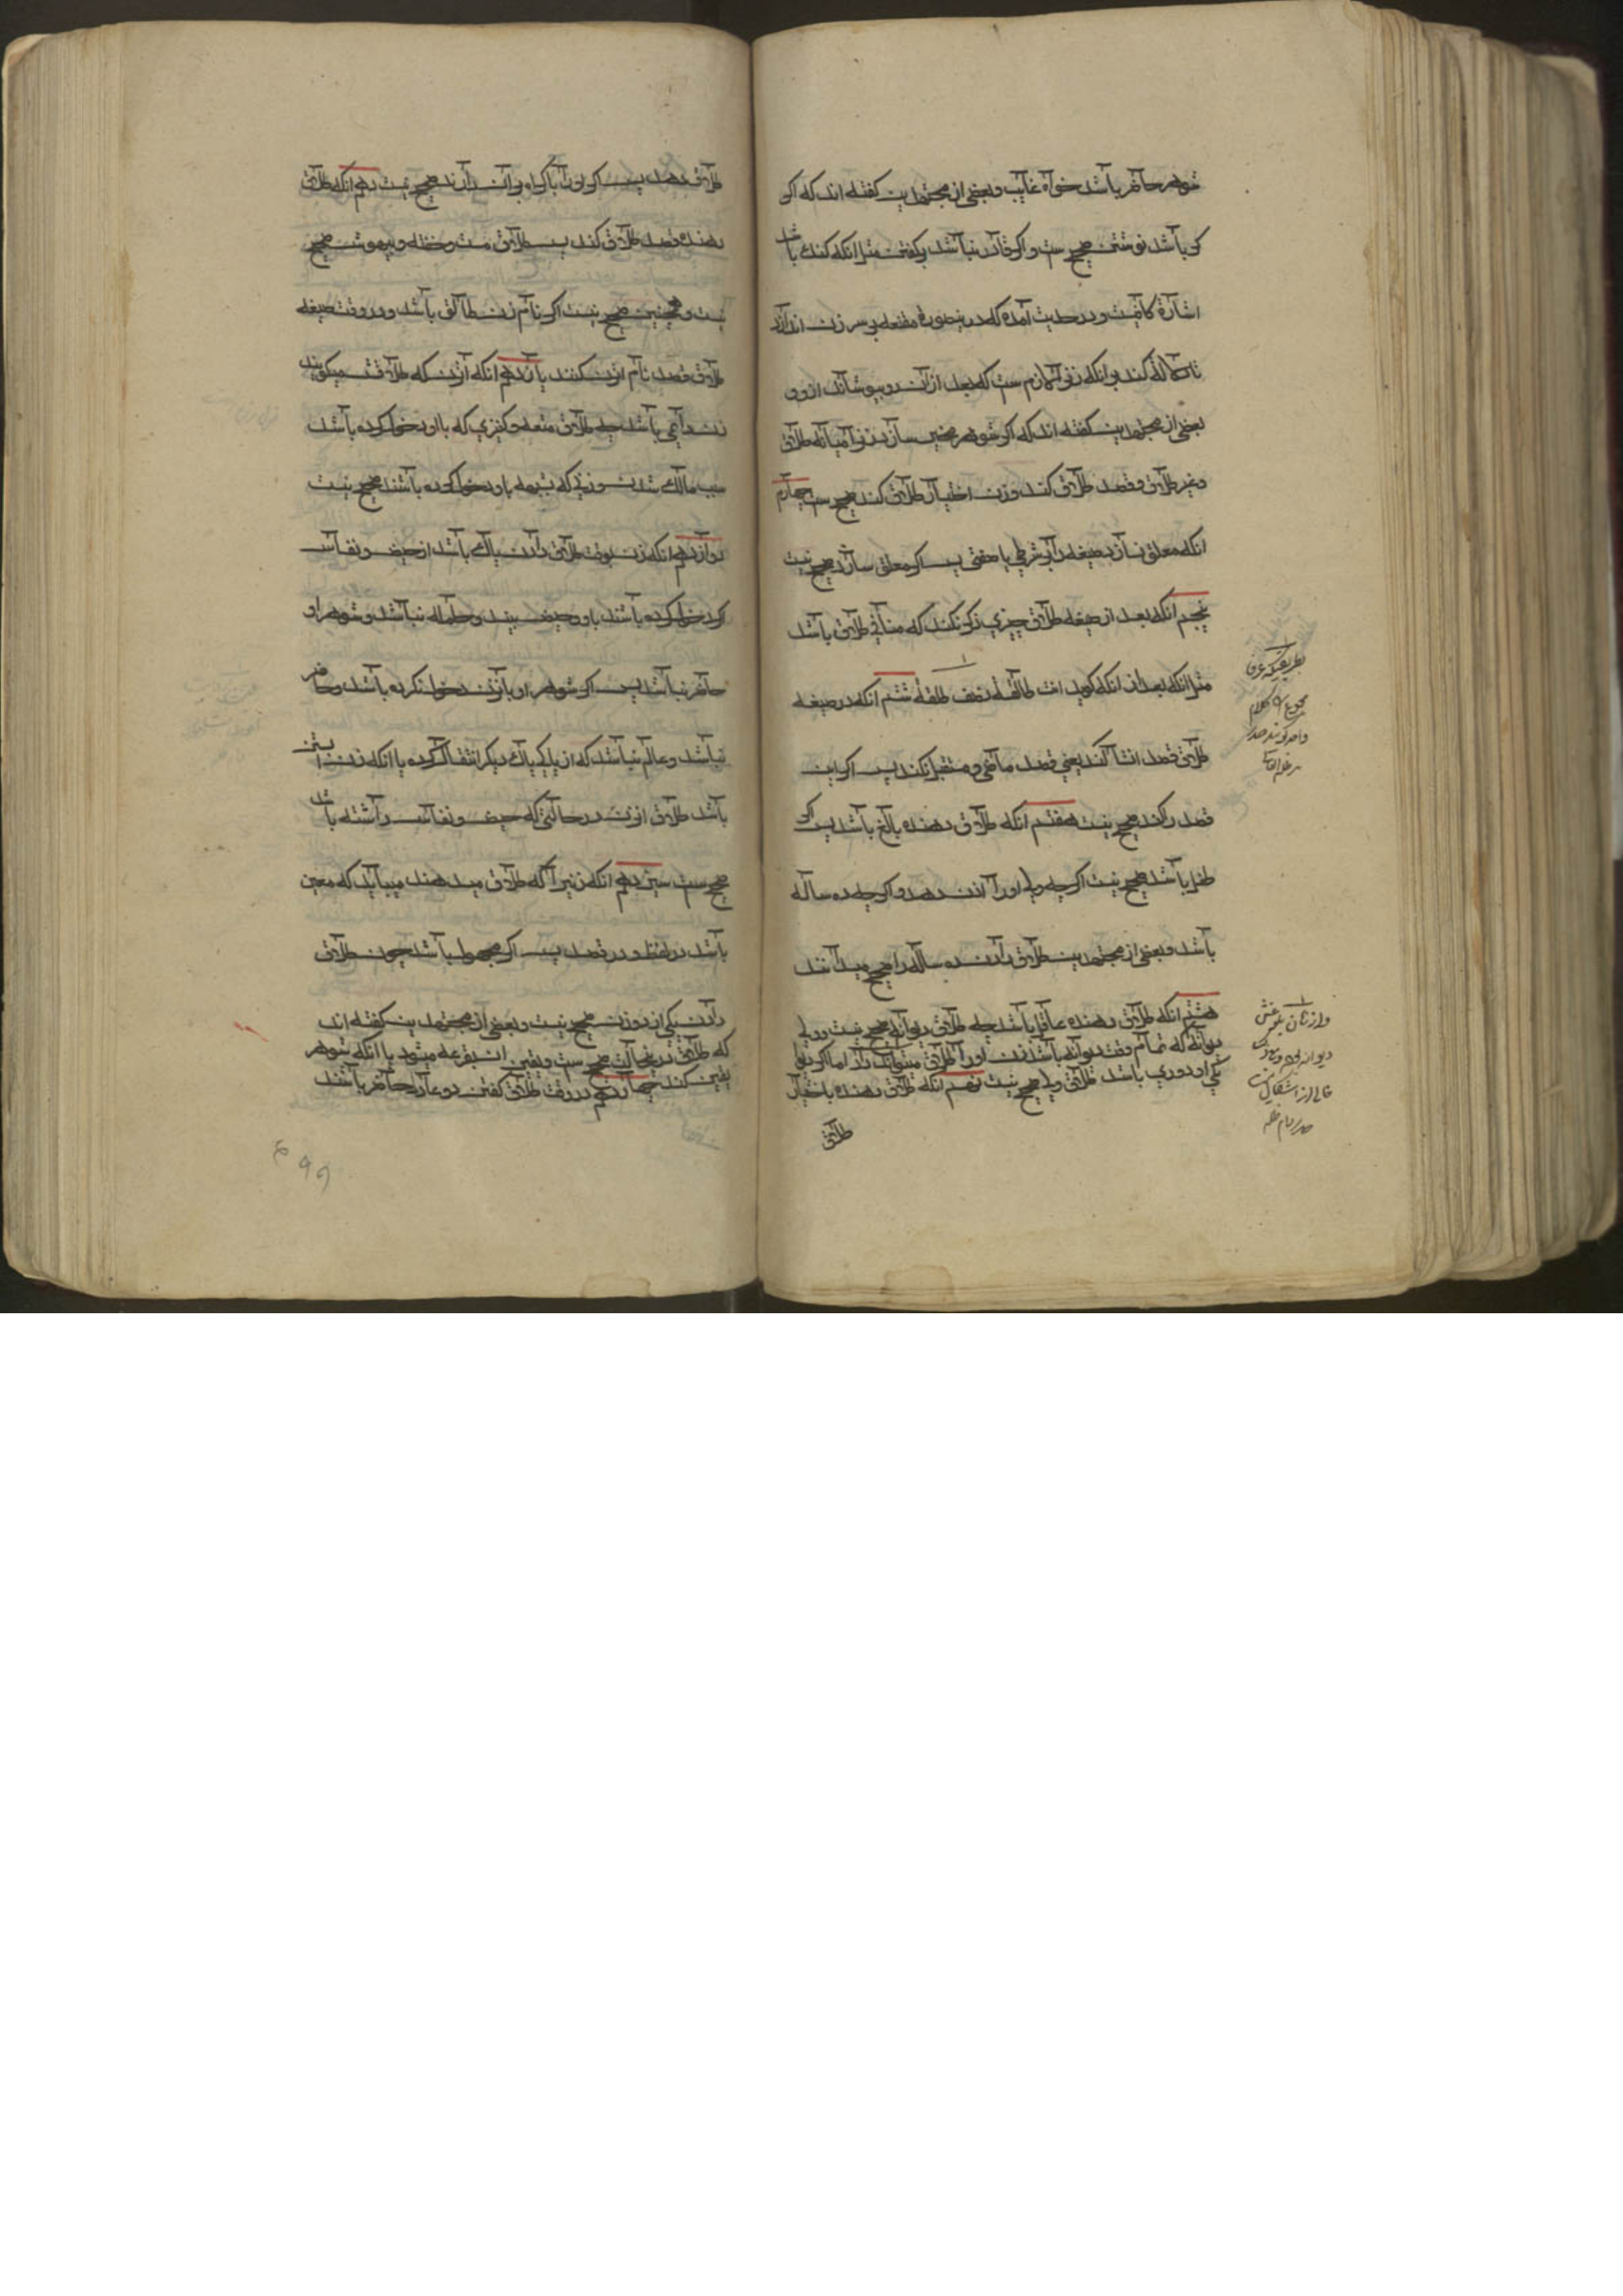 شوهر حاضر باشد خواه غایب و بعضی از مجتهدین کفته اند که اکر
کر باشد نوشتن صحیح ست و اکر قادر نباشد بر کفتن مثل انکه کنك باشد
اشارة کافیست و در حدیث آمده که درینصورة مقنعه بر سر زن اندازد
تا دلالة کند بر انکه زنرا لازم ست که بعد از آن رو بپوشاند ازو و
بعضی از مجتهدین کفته اند که اکر شوهر مخیر سازد زنرا میانه طلاق
و غیر طلاق و قصد طلاق کند و زن اختیار طلاق کند صحیح ست چهارم
انکه معلق نسازد صیغه را بر شرطی یا صفتی پس اکر معلق سازد صحیح نیست
پنجم انکه بعد از صیغه طلاق چیزی ذکر نکند که منافی طلاق باشد
مثل انکه بعد از انکه کوید انت طالقة نصف طلقة ششم انکه در صیغه
طلاق قصد انشا کند یعنی قصد ماضی و مستقبل نکند پس اکر این
قصد را کند صحیح نیست هفتم انکه طلاق دهنده بالغ باشد پس اکر
طفل باشد صحیح نیست اکرچه ولی اورا اذن دهد و اکرچه ده ساله
باشد و بعضی از مجتهدین طلاق دادن ده ساله را صحیح میدانند
هشتم انکه طلاق دهنده عاقل باشد چه طلاق دیوانه صحیح نیست و ولی
دیوانه که تمام وقت دیوانه باشد زن اورا طلاق میتواند داد اما اکر دیوانه
کی او دوری باشد طلاق ولی صحیح نیست نهم انکه طلاق دهنده باختیار
طلاق
بطریقیکه عرفا
مجموع کلام
واحد کویند صدر
طلاق دهد پس اکر اورا باکراه بر آن دارند صحیح نیست دهم انکه طلاق
دهنده قصد طلاق کند پس طلاق مست و خفته و بیهوش صحیح
نیست و همچنین صحیح نیست اکر نام زن طالق باشد و در وقت صیغه
طلاق قصد نام ازن کنند یازدهم انکه آنزن که طلاقش میکویند
زن دایمی باشد چه طلاق متعه و کنیزی که با او دخول کرده باشد
سبب مالك شدن و زنی که بشبهه با و دخول کرده باشند صحیح نیست
دوازدهم انکه زن بوقت طلاق دادن پاك باشد از حیض و نفاس
اکر دخول کرده باشند با و و حیض بیند و حامله نباشد و شوهر او
حاضر نباشد پس اکر شوهر او با زن دخول نکرده باشد و حاضر
نباشد و عالم نباشد که از پاکی بپاك دیکر انتقال کرده یا انکه زن ابستن
باشد طلاق انزن در حالتی که حیض و نفاس داشته باشد
صحیح ست سیزدهم انکه زنیرا که طلاق میدهند میباید که معین
باشد در لفظ و در قصد پس اکر مجهول باشد چون طلاق
دادن یکی از دو زن صحیح نیست و بعضی از مجتهدین کفته اند
که طلاق درینحالت صحیح ست و یقین ان بقرعه میشود یا انکه شوهر
یقین کند چهاردهم در وقت طلاق کفتن دو عادل حاضر باشند